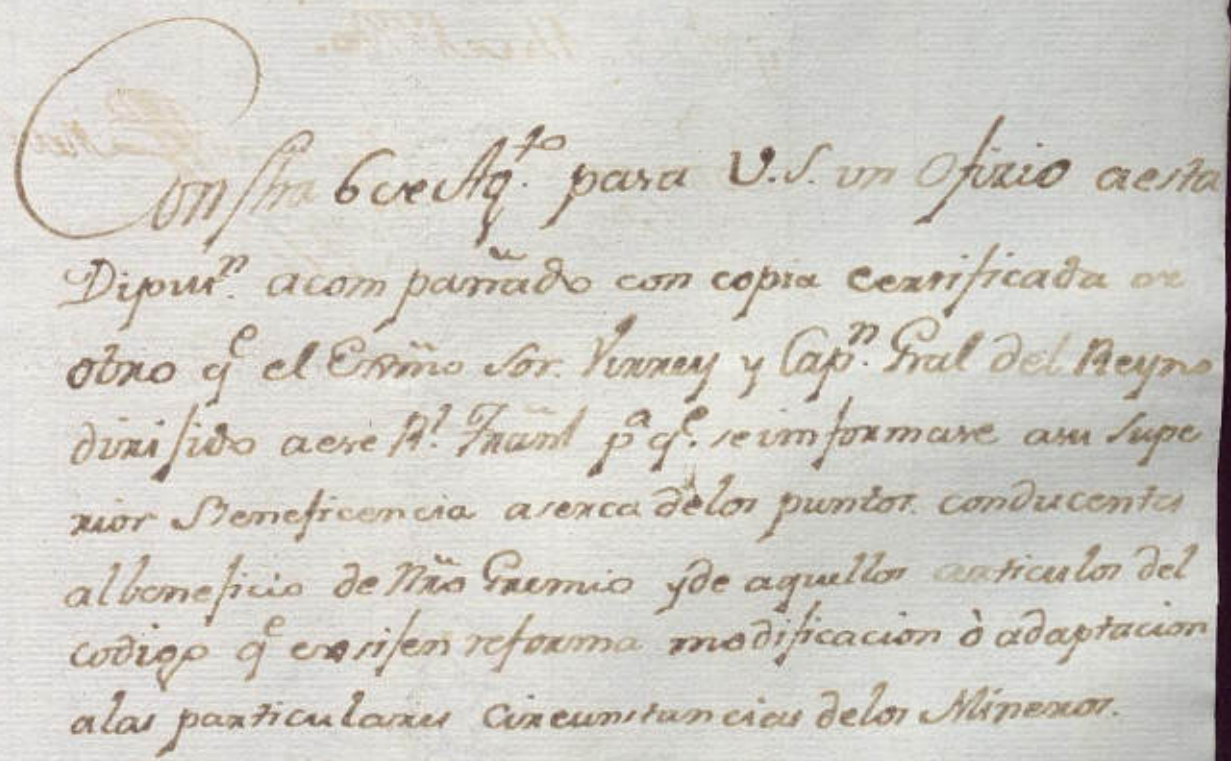 Con fha 6 de Agto. para V.S. un Ofizio a esta
Diputn. acompañado con copia certificada de
otro qe el Exmõ Sor. Virrey y Capn. Gral del Reyno
dirijido a ese Rl. Traũnl pa qe. se imformase a su Supe
rior Beneficencia aserca de los puntos conducentes
al beneficio de Nrõ Gremio y de aquellos articulos del
codigo qe exsijen reforma modificacion ò adaptacion
a las particulares circunstancias de los Mineros.